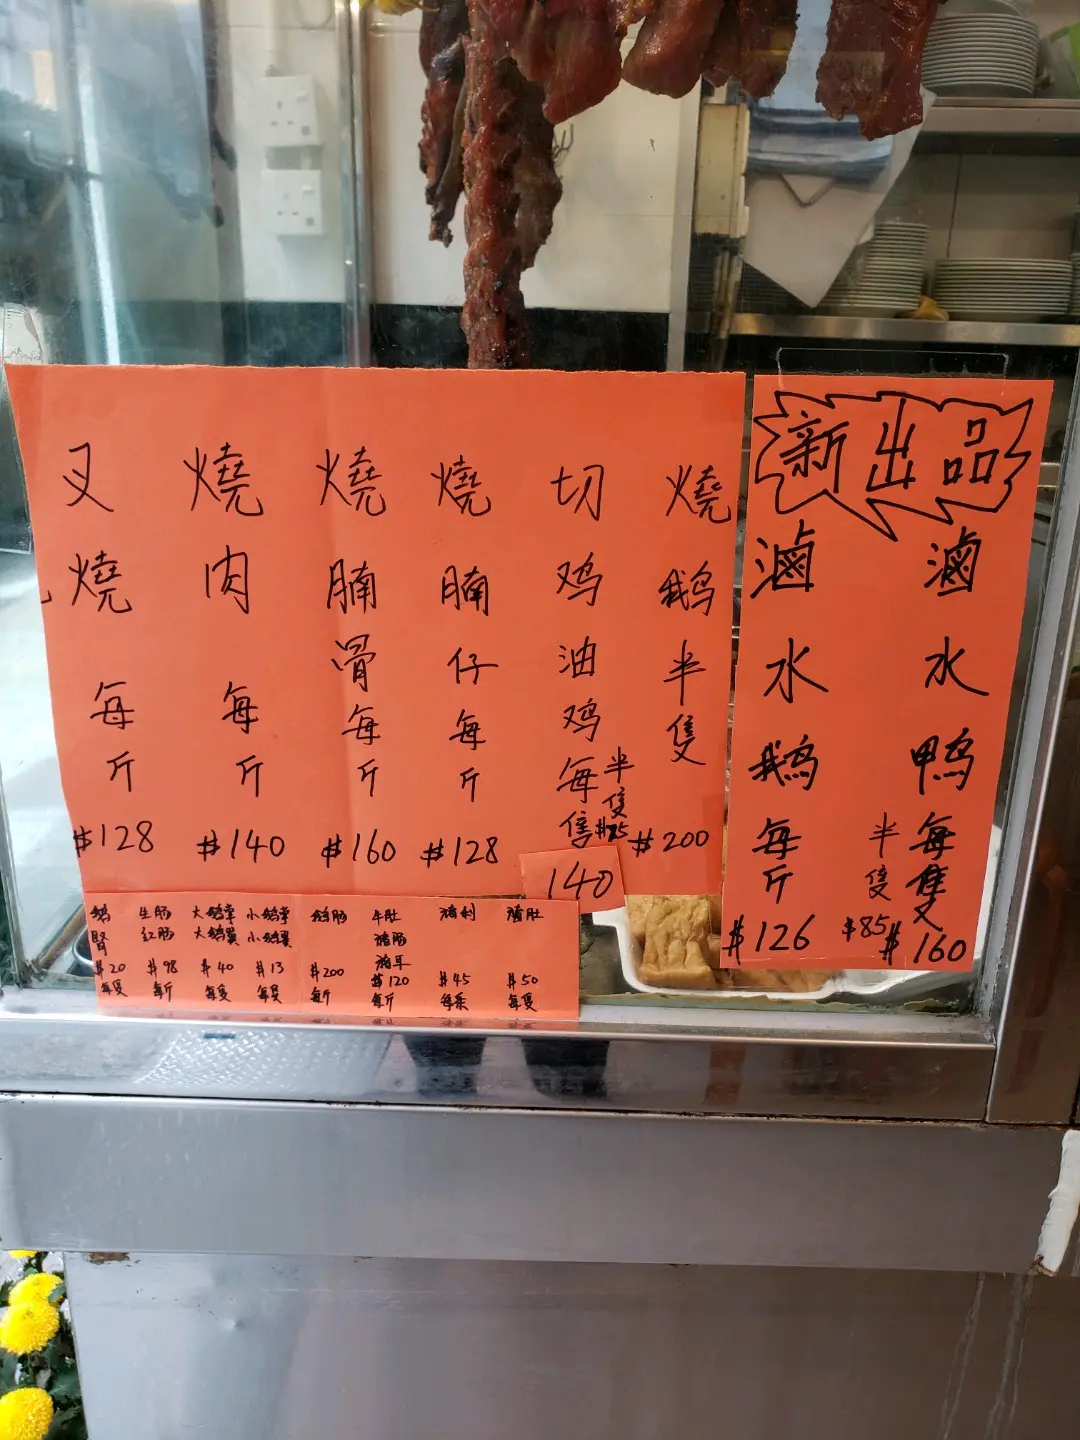 叉燒每斤
$128
燒肉每斤
$140
燒腩骨每斤
$160
燒腩仔每斤
$128
切鸡油鸡每隻
140
半隻$75
燒鹅半隻
$200
新出品
滷水鹅每斤
$126
滷水鸭每隻
$160
半隻
$85
鹅腎
$20
每隻
生肠
红肠
$98
每斤
大鹅掌
大鹅翼
$40
每隻
小鹅掌
小鹅翼
$13
每隻
鹅肠
$200
每斤
牛肚
猪肠
猪耳
$120
每斤
猪利
$45
每条
猪肚
$50
每隻